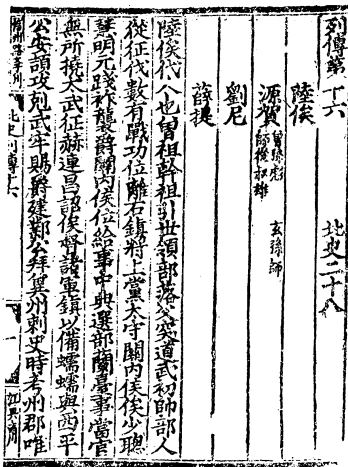 列傳第十六　北史二十八
陸俟
源賀　曾孫彪　玄孫師
師從叔雄
劉尼
薛提
陸俟代人也曾祖幹祖引世領部落父突道武初帥部人
從征伐數有戰功位離石鎮將上黨太守關內侯俟少聰
慧明元踐祚襲爵關內侯位給事中典選部蘭臺事當官
無所撓太武征赫連昌詔俟督諸軍鎮以備蠕蠕與西平
公安頡攻剋武牢賜爵建鄴公拜冀州刺史時考州郡唯
北史列傳十六